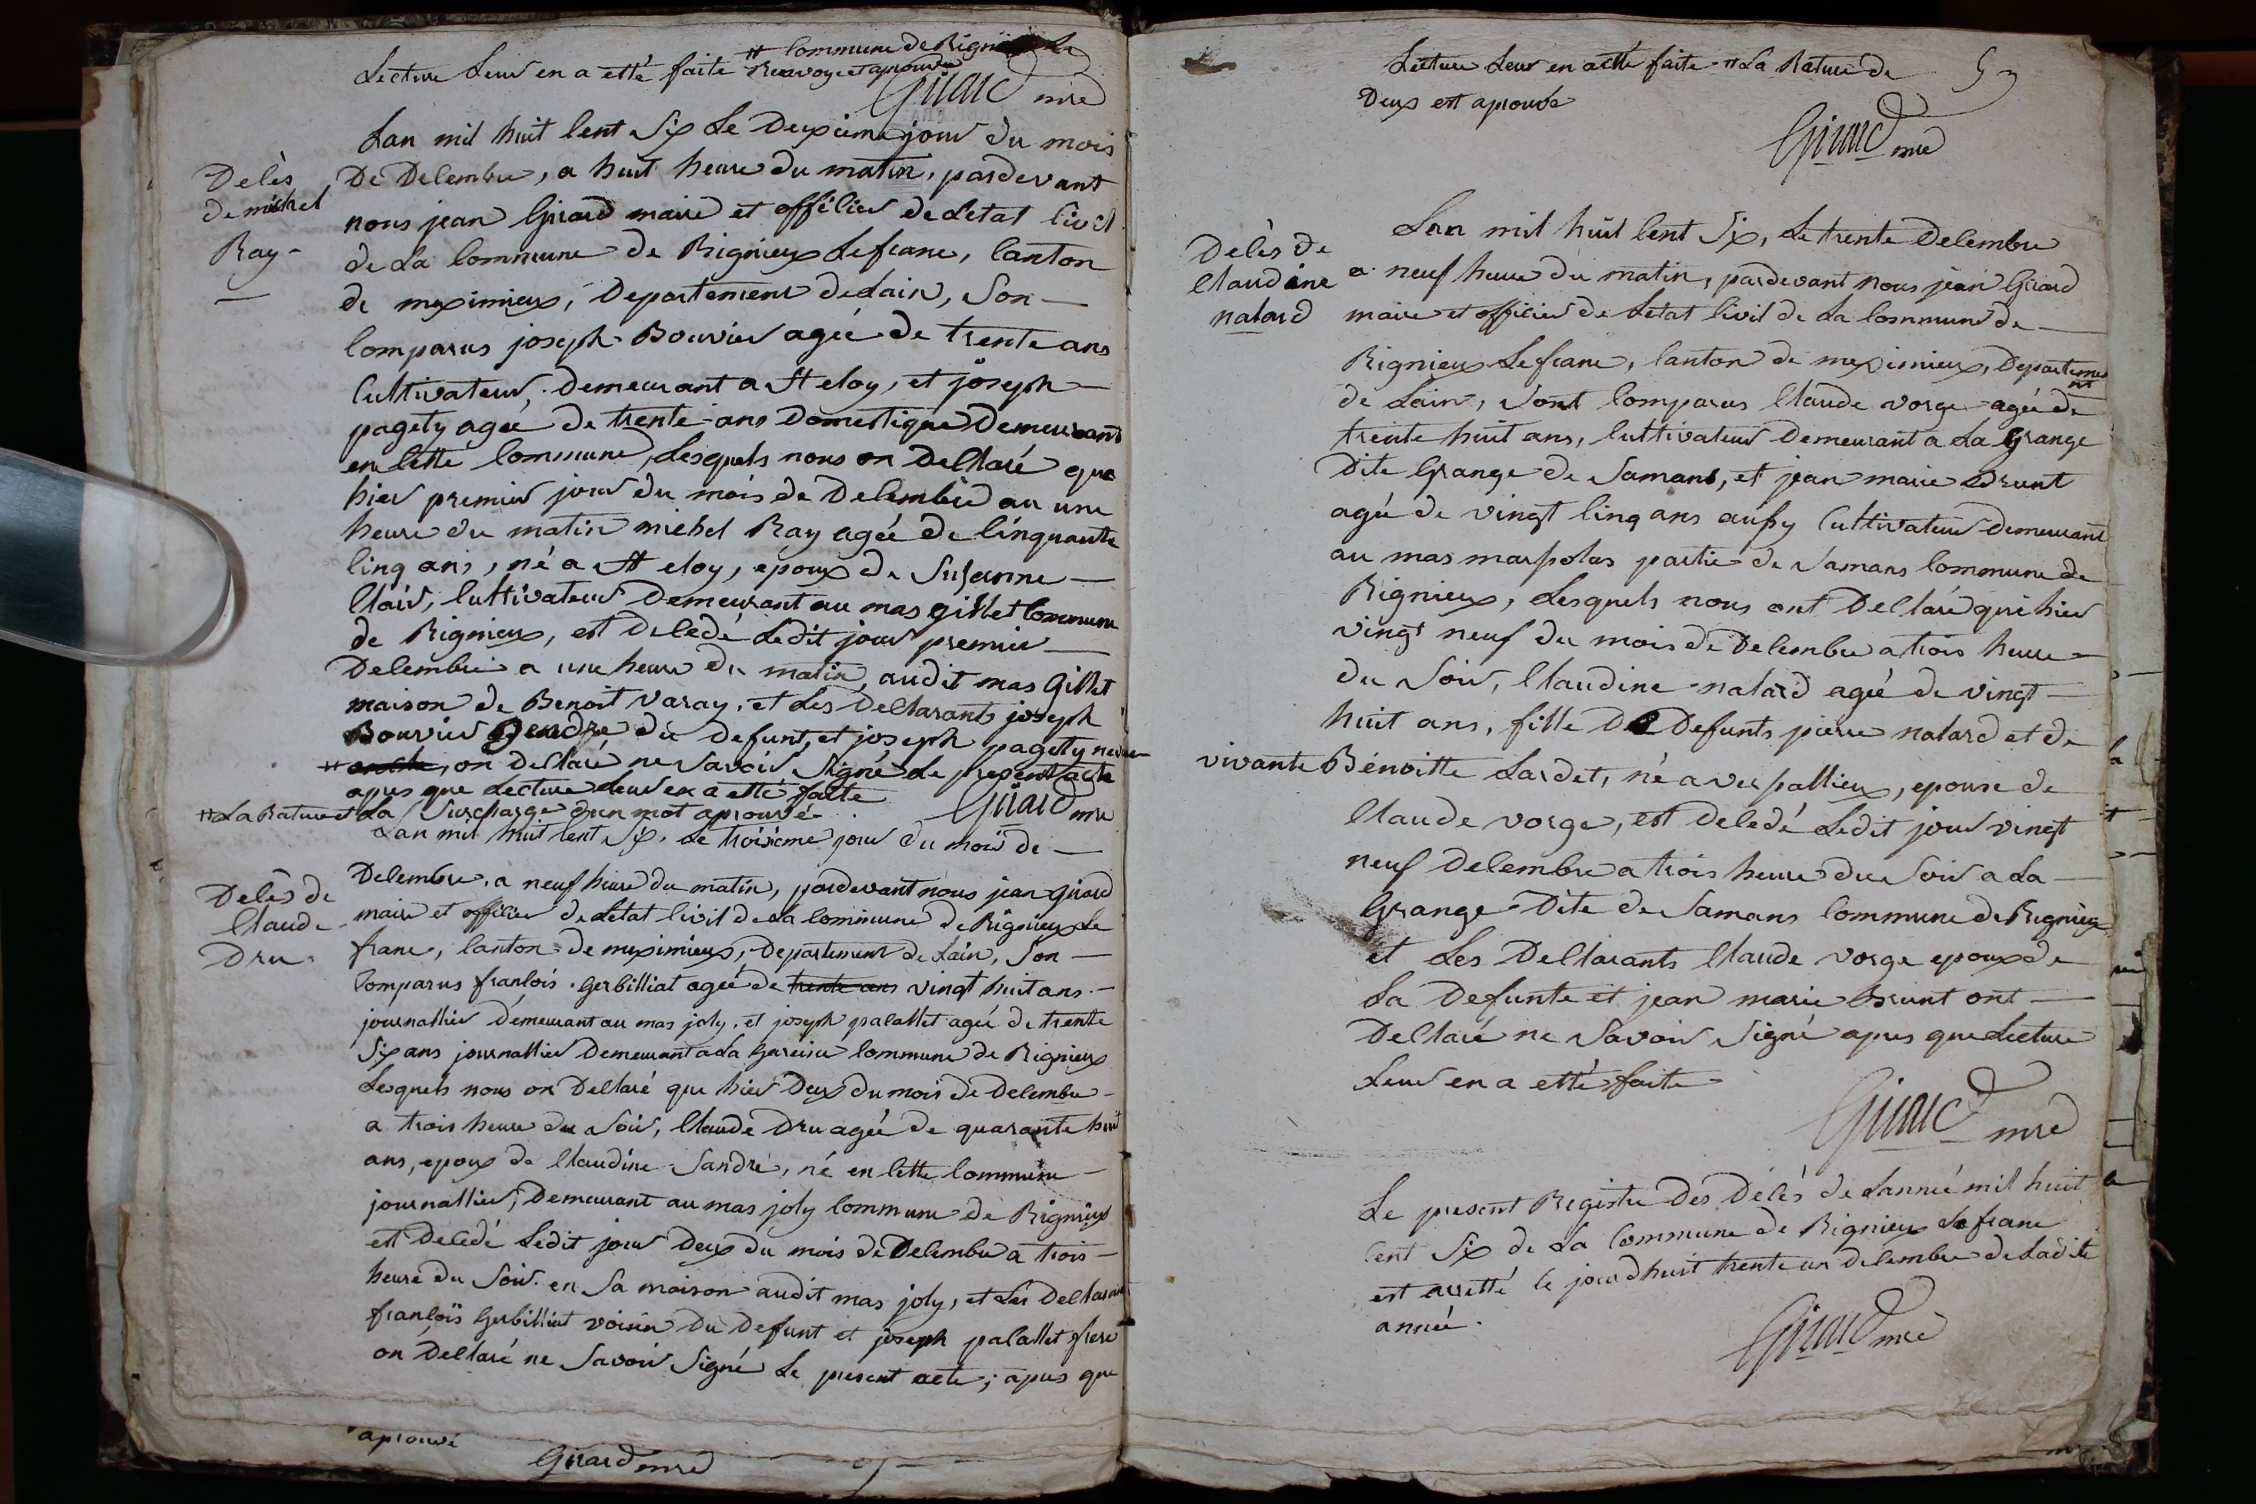 Lecture Leur en a etté faite # Commune de Rignieux Le
Renvoye et aprouvée
Girard mre
Lan mil huit Cent Six Le Deuxieme jour du mois
Decès
de michel
Ray
De Decembre, a huit heure du matin, pardevant
nous jean Girard maire et officier de Letat Civil
de La Commune de Rignieux Lefranc, Canton
de meximieux, Departement de Lain, Son
Comparus joseph Bouvier agée de trente ans
Cultivateur, Demeurant a St eloy, et joseph
pagety agée de trente ans Domestique Demeurant
en Cette Commune, Lesquels nous on Declaré que
hier premier jour du mois de Decembre au une
heure du matin michel Ray agée de Cinquante
Cinq ans, né a St eloy, epoux de Susanne
Clair, Cultivateur Demeurant au mas gillet Commune
de Rignieux, est Decedé Ledit jour premier
Decembre a une heure du matin, audit mas Gillet
maison de Benoit Varay, et Les Declarants joseph
Bouvier Gendre du Defunt, et joseph pagety neveu
#, on Declaré ne Savoir Signé Le present acte
apres que Lecture Leur en a etté faite
Girard mre
# La Rature et La Surcharge d'un mot aprouvé
Lan mil huit Cent Six, Le troisieme jour du mois de
Decès de
Claude
Dru
Decembre, a neuf heure du matin, pardevant nous jean Girard
maire et officier de Letat Civil de La Commune de Rignieux Le
franc, Canton de meximieux, Departement de Lain, Son
Comparus francois Gerbilliat agée de trente ans vingt huit ans
journallier Demeurant au mas joly, et joseph palallet agée de trente
Six ans journallier Demeurant a La Commune de Rignieux
Lesquels nous on Declaré que hier Deux du mois de Decembre
a trois heure du Soir, Claude Dru agée de quarante huit
ans, epoux de Claudine Sandre, né en Cette Commune
journallier, Demeurant au mas joly Commune de Rignieux
est Decedé Ledit jour Deux du mois de Decembre a trois
heure du Soir en Sa maison audit mas joly, et Les Declarants
francois Gerbilliat voisin Du Defunt et joseph palallet frere
on Declaré ne Savoir Signé Le present acte, apres que
aprouvé
Girard mre
Lecture Leur en a etté faite # La Rature de
Deux est aprouvée
Girard mre
Decès de
Claudine
natard
Lan mil huit Cent Six, Le trente Decembre
a neuf heure du matin, pardevant nous jean Girard
maire et officier de Letat Civil de La Commune de
Rignieux Lefranc, Canton de meximieux, Departement
de Lain, Sont Comparus Claude vorge agée de
trente huit ans, Cultivateur Demeurant a La Grange
Dite Grange de Samans, et jean marie Brunt
agée de vingt Cinq ans aussy Cultivateur Demeurant
au mas marsolas partie de Samans Commune de
Rignieux, Lesquels nous ont Declaré que hier
vingt neuf du mois de Decembre a trois heure
du Soir, Claudine natard agée de vingt
huit ans, fille De Defunts pierre natard et de
vivante Bénoitte Lardet, né a verpallieux, epouse de
Claude vorge, est Decedé Ledit jour vingt
neuf Decembre a trois heure du Soir a La
Grange Dite de Samans Commune de Rignieux
et Les Declarants Claude vorge epoux de
La Defunte et jean marie Brunt ont
Declaré ne Savoir Signé apres que Lecture
Leur en a etté faite
Girard mre
Le present Registre Des Décés de Lannée mil huit
Cent Six de La Commune de Rignieux Lefranc
est aretté le jourdhuit trente un Decembre de Ladite
année.
Girard mre